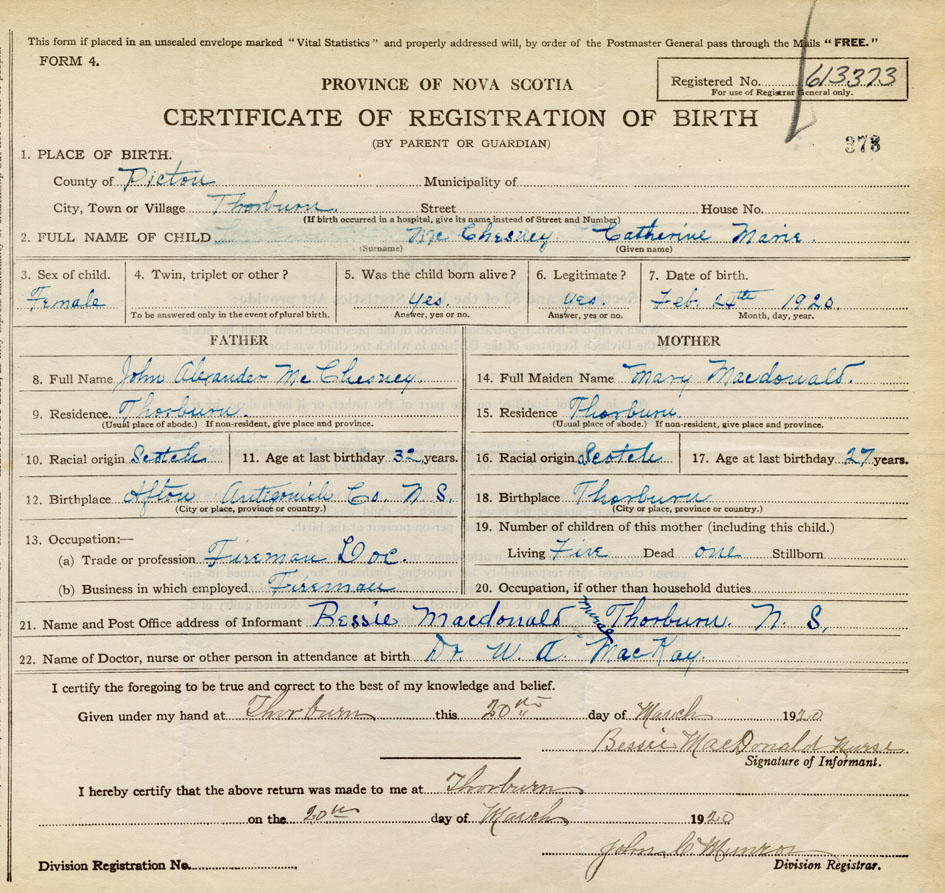 This form if placed in an unsealed envelope marked "Vital Statistics" and properly addressed will, by order of the Postmaster General pass through the Mails "FREE."
FORM 4.
PROVINCE OF NOVA SCOTIA
Registered No. 613373
For use of Registrar General only.
CERTIFICATE OF REGISTRATION OF BIRTH
(BY PARENT OR GUARDIAN)
373
1. PLACE OF BIRTH:
County of Pictou Municipality of
City, Town or Village Thorburn. Street House No.
(If birth occurred in a hospital, give its name instead of Street and Number)
2. FULL NAME OF CHILD McChesney Catherine Marie.
(Surname) (Given name)
3. Sex of child. 4. Twin, triplet or other? 5. Was the child born alive? 6. Legitimate? 7. Date of birth.
Female Yes. Yes. Feb. 24th 1920.
To be answered only in the event of plural birth. Answer, yes or no. Answer, yes or no. Month, day, year.
FATHER MOTHER
8. Full Name John Alexander McChesney. 14. Full Maiden Name Mary Macdonald.
9. Residence. Thorburn. 15. Residence Thorburn
(Usual place of abode.) If non-resident, give place and province. (Usual place of abode.) If non-resident, give place and province.
10. Racial origin Scotch 11. Age at last birthday 32 years. 16. Racial origin Scotch 17. Age at last birthday 27 years.
12. Birthplace Afton Antigonish Co. N. S. 18. Birthplace Thorburn
(City or place, province or country.) (City or place, province or country.)
13. Occupation:— 19. Number of children of this mother (including this child.)
(a) Trade or profession Fireman Loc. Living Five Dead one Stillborn
(b) Business in which employed Fireman 20. Occupation, if other than household duties
21. Name and Post Office address of Informant Bessie Macdonald Nurse Thorburn. N. S.
22. Name of Doctor, nurse or other person in attendance at birth Dr. W. A. MacKay.
I certify the foregoing to be true and correct to the best of my knowledge and belief.
Given under my hand at Thorburn this 20th day of March 1920
Bessie MacDonald Nurse
Signature of Informant.
I hereby certify that the above return was made to me at Thorburn
on the 20th day of March 1920
John C Munro
Division Registration No. Division Registrar.